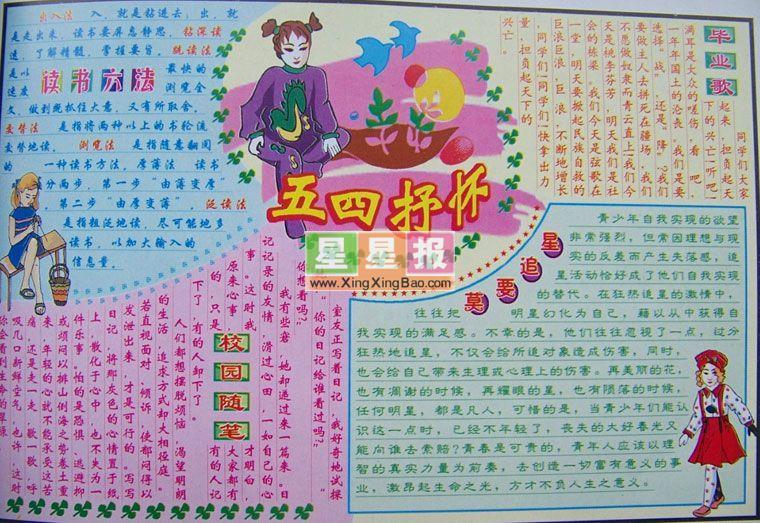 出入法 入，就是钻进去；出，就
是走出来。读书要屏息静思，钻深读
透，了解精髓，掌握要旨。跳读法
是以 读书六法 最快的
速度 浏览全
文，做到既抓住大意，又有所取舍。
交替法 是指将两种以上的书轮流
交替地读。浏览法 是指随意翻阅
的一种读书方法。厚薄法 读书
分两步，第一步“由薄变厚”
第二步“由厚变薄”，泛读法
是指粗泛地读，尽可能地多
读书，以加大输入的
信息量。
五四抒怀
星星报
www.XingXingBao.com
毕业歌
同学们大家
起来，担负起天
下的兴亡！听吧！
满耳是大众的嗟伤，看吧！
一年年国土的沦丧，我们是要
选择“战”还是“降”？我们
要做主人去拼死在疆场，我们
不愿做奴隶而青云直上！我们今
天是桃李芬芳，明天我们是社
会的栋梁。我们今天是弦歌在
一堂，明天要掀起民族自救的
巨浪巨浪，巨浪，不断地增长
！同学们！同学们！快拿出力
量，担负起天下的
兴亡。
莫要追星
青少年自我实现的欲望
非常强烈，但常因理想与现
实的反差而产生失落感，追
星活动恰好成了他们自我实现
的替代。在狂热追星的激情中，
往往把 明星幻化为自己，藉以从中获得自
我实现的满足感。不幸的是，他们往往忽视了一点，过分
狂热地追星，不仅会给所追对象造成伤害，同时，
也会给自己带来生理或心理上的伤害。再美丽的花，
也有凋谢的时候，再耀眼的星，也有陨落的时候，
任何明星，都是凡人，可惜的是，当青少年们能认
识这一点时，已经不年轻了，丧失的大好春光又
能向谁去索赔?青春是可贵的，青年人应该以理
智的真实力量为前奏，去创造一切富有意义的事
业，激昂起生命之光，方才不负人生之意义。
校园随笔
室友正写着日记，我好奇地试探
“你的日记给谁看过吗?”
你想看吗?”
我有些窘，她却递过来一篇来。日
记记录的友情，滑过心田，一如自己的心
事。这时我 才明白，
原来心事 大家都有
的，只是 有的人记
下了，有的人却下了。
人们都想摆脱烦恼，渴望明朗
的生活，追求方式却大相径庭。
若直视面对，倾诉，使郁闷得以
发泄出来，才是可行的。写写
日记，将那灰色的心情置于纸
上，散化于心中，也不失为一
件乐事。怕的是恐惧，逃避抑
或烦闷以排山倒海之势卷土重
来，年轻的心就不能承受这苦
痛，还是走一走，歌一歌，呼
吸几口新鲜空气，也许，这时